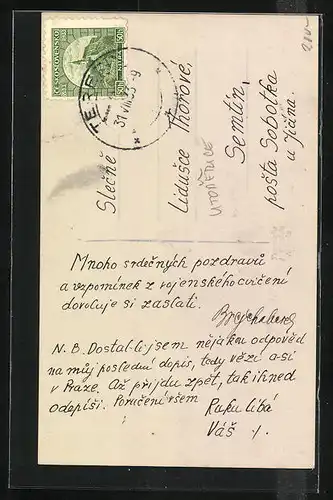 ČESKOSLOVENSKO
TEREZ
31.VIII.35-9
Slečně
Lidušče Thořové,
UTOPENICE
Semtín,
pošta Sobotka
u Jičína.
Mnoho srdečných pozdravů
a vzpomínek z vojenského cvičení
dovoluje si zaslati.
N.B. Dostal-li jsem nějakou odpověď
na můj poslední dopis, tedy vězí a-si
v Praze. Až přijdu zpět, tak ihned
odepíši. Poručení všem
Ruku líbá
Váš /.